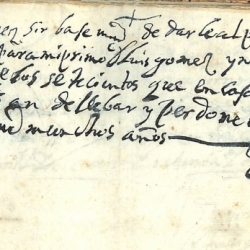 sir base md de dar le al p
para mi primo luis gomez y n
esos setecientos que en casa
an de llebar y perdone
md munchos años